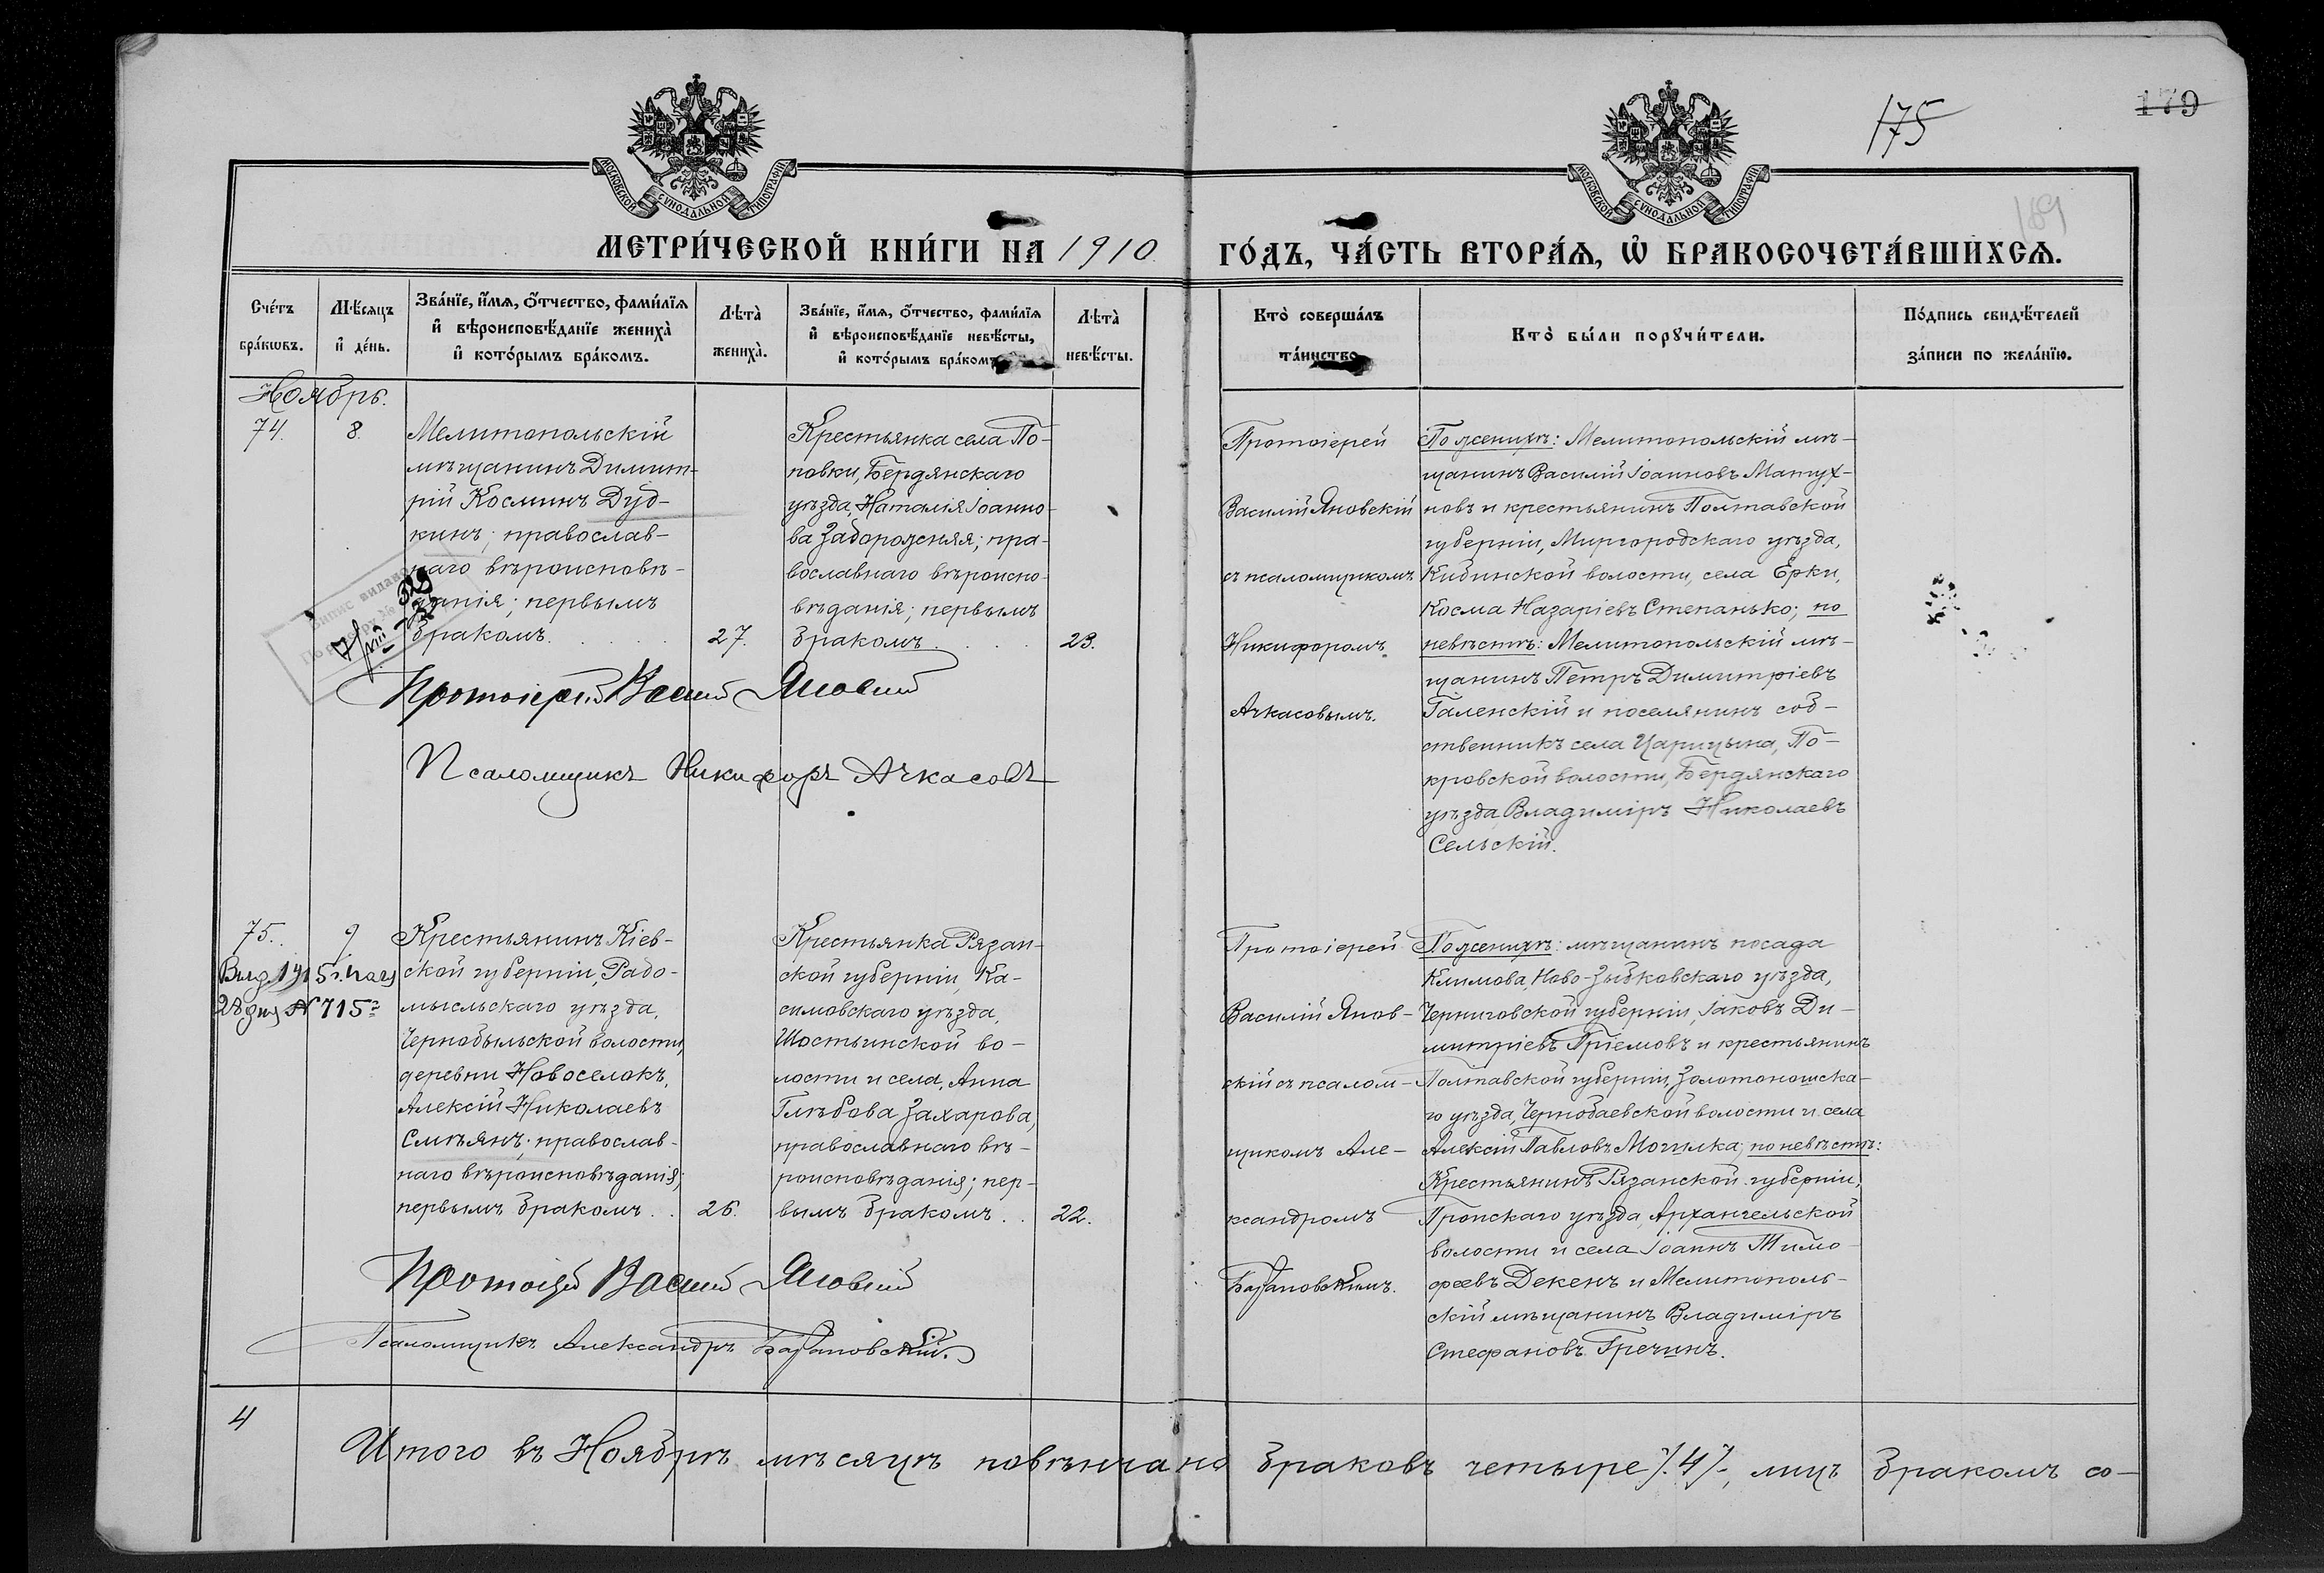 175
179
189
МОСКОВСКОЙ СѴНОДАЛЬНОЙ ТИПОГРАФІИ
МОСКОВСКОЙ СѴНОДАЛЬНОЙ ТИПОГРАФІИ
МЕТРИ́ЧЕСКОЙ КНИ́ГИ НА 1910 ГО́ДЪ, ЧА́СТЬ ВТОРА́Ѧ, Ѡ҆ БРАКОСОЧЕТА́ВШИХСѦ.
Сче́тъ
бра́кѡвъ.
Мѣ́сяцъ
и҆ де́нь.
Зва́нїе, и҆́мѧ, о҆́тчество, фами́лїѧ
и҆ вѣроисповѣ́данїе жениха̀
и҆ кото́рымъ бра́комъ.
Лѣта̀
жениха̀.
Зва́нїе, и҆́мѧ, о҆́тчество, фами́лїѧ
и҆ вѣроисповѣ́данїе невѣ́сты,
и҆ кото́рымъ бра́комъ
Лѣта̀
невѣ́сты.
Кто̀ соверша́лъ
та́инство
Кто̀ бы́ли порꙋчи́тели.
По́дпись свидѣ́телей
за́писи по жела́нїю.
Ноябрь.
74.
8.
Мелитопольскій
мѣщанинъ Димит-
рій Косминъ Дуд-
кинъ; православ-
наго вѣроисповѣ-
данія; первымъ
бракомъ.
27.
Крестьянка села По-
повки, Бердянскаго
уѣзда, Наталія Іоанно-
ва Задорожняя; пра-
вославнаго вѣроиспо-
вѣданія; первымъ
бракомъ
23.
Протоіерей
Василій Яновскій
съ псаломщикомъ
Никифоромъ
Ачкасовымъ.
По женихѣ: Мелитопольскій мѣ-
щанинъ Василій Іоанновъ Матух-
новъ и крестьянинъ Полтавской
губерніи, Миргородскаго уѣзда,
Кибинской волости, села Ерки,
Косма Назаріевъ Степанько; по
невѣстѣ: Мелитопольскій мѣ-
щанинъ Петръ Димитріевъ
Галенскій и поселянинъ соб-
ственникъ села Царицына, По-
кровской волости, Бердянскаго
уѣзда, Владиміръ Николаевъ
Сельскій.
Протоіерей Василій Яновскій
Псаломщикъ Никифоръ Ачкасовъ
75.
9
Выд. 1915 г.
28 дня № 715
Крестьянинъ Кіев-
ской губерніи, Радо-
мысльскаго уѣзда,
Чернобыльской волости,
деревни Новоселокъ,
Алексій Николаевъ
Смѣянъ; православ-
наго вѣроисповѣданія;
первымъ бракомъ
26.
Крестьянка Рязан-
ской губерніи, Ка-
симовскаго уѣзда,
Шостьинской во-
лости и села, Анна
Глѣбова Захарова,
православнаго вѣ-
роисповѣданія; пер-
вымъ бракомъ
22.
Протоіерей
Василій Янов-
скій съ псалом-
щикомъ Але-
ксандромъ
Барановскимъ.
По женихѣ: мѣщанинъ посада
Климова, Ново-Зыбковскаго уѣзда,
Черниговской губерніи, Іаковъ Ди-
митріевъ Пріемовъ и крестьянинъ
Полтавской губерніи, Золотоношска-
го уѣзда, Чернобаевской волости и села
Алексій Павловъ Могилка; по невѣстѣ:
Крестьянинъ Рязанской губерніи,
Пронскаго уѣзда, Архангельской
волости и села Іоаннъ Тимо-
феевъ Декенъ и Мелитополь-
скій мѣщанинъ Владиміръ
Стефановъ Гречинъ.
Протоіерей Василій Яновскій
Псаломщикъ Александръ Барановскій.
4
Итого въ Ноябрѣ мѣсяцѣ повѣнчано браковъ четыре /.4/., лицъ бракомъ со-